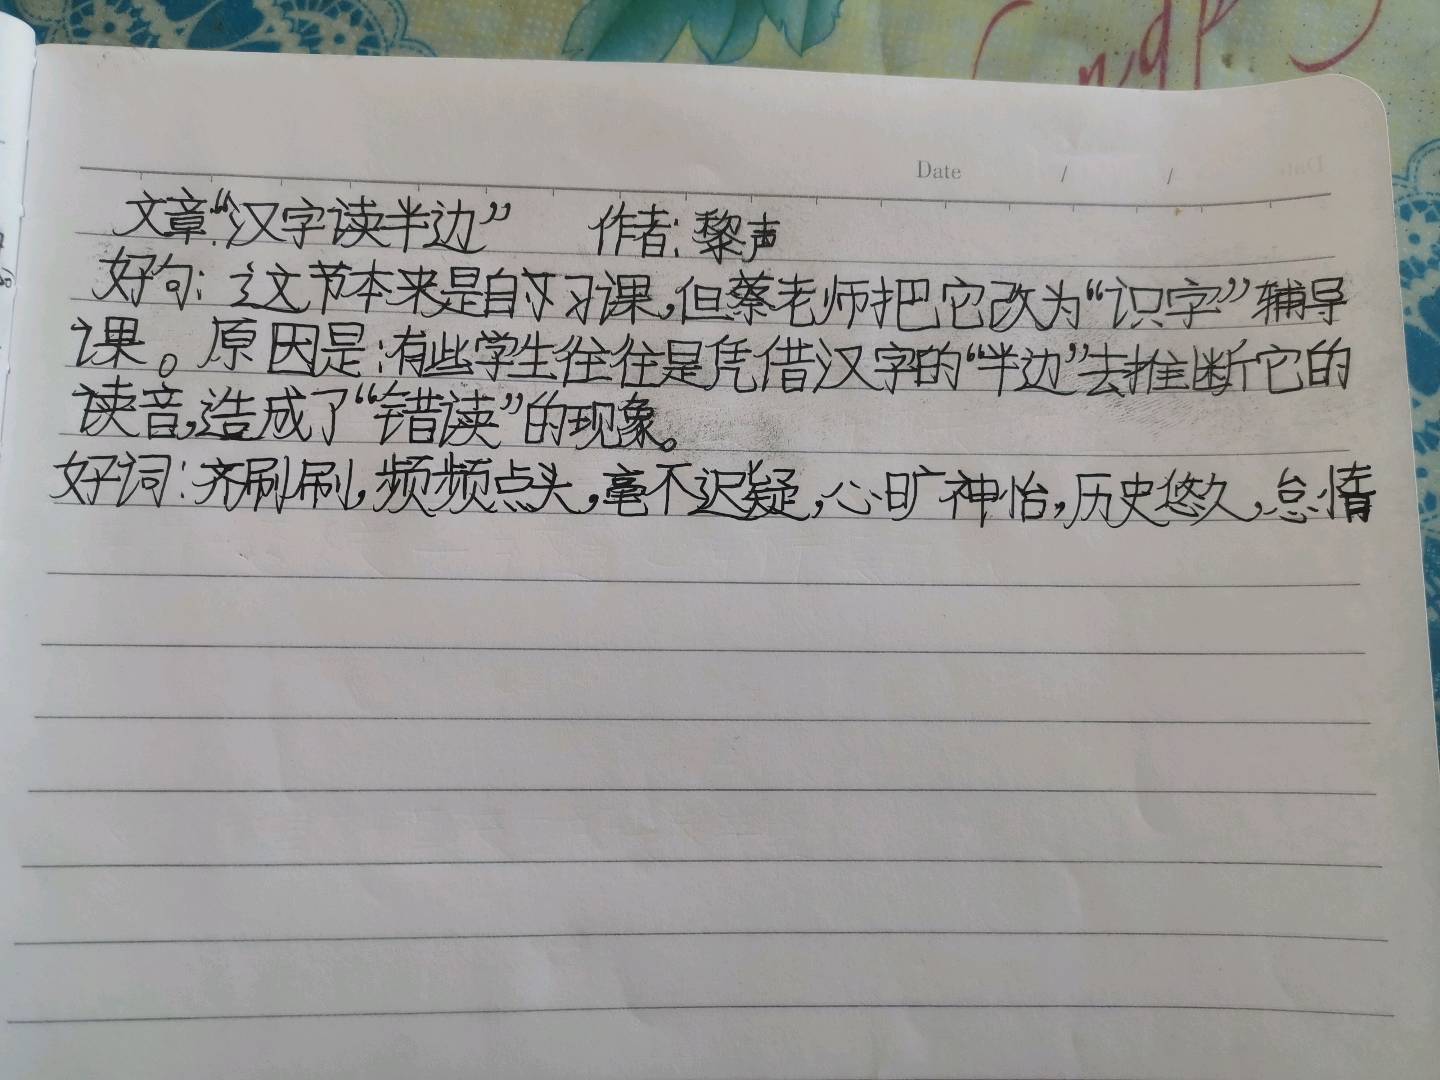 Date / /
文章:“汉字读半边” 作者:黎声
好句:这节本来是自习课,但蔡老师把它改为“识字”辅导
课。原因是:有些学生往往是凭借汉字的“半边”去推断它的
读音,造成了“错读”的现象。
好词:齐刷刷,频频点头,毫不迟疑,心旷神怡,历史悠久,怠惰